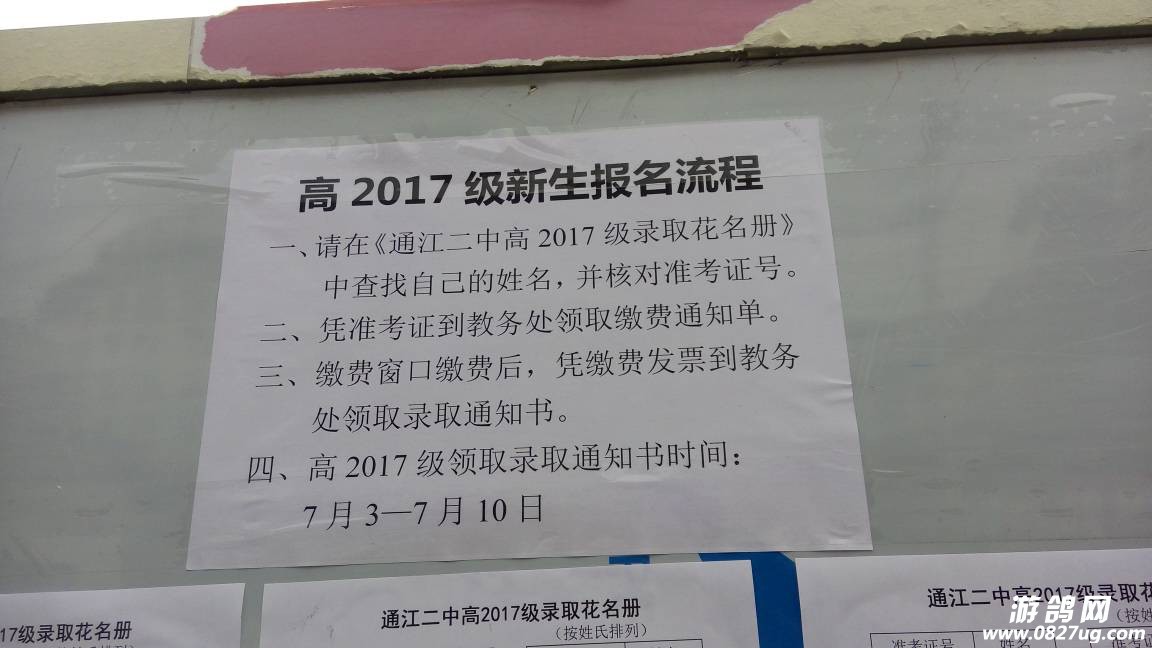 高2017级新生报名流程
一、请在《通江二中高2017级录取花名册》
中查找自己的姓名，并核对准考证号。
二、凭准考证到教务处领取缴费通知单。
三、缴费窗口缴费后，凭缴费发票到教务
处领取录取通知书。
四、高2017级领取录取通知书时间：
7月3—7月10日
17级录取花名册
(按姓氏排列)
通江二中高2017级录取花名册
(按姓氏排列)
通江二中高2017级录取花
(按姓
准考证号 姓名 准考证
游鸽网
www.0827ug.com